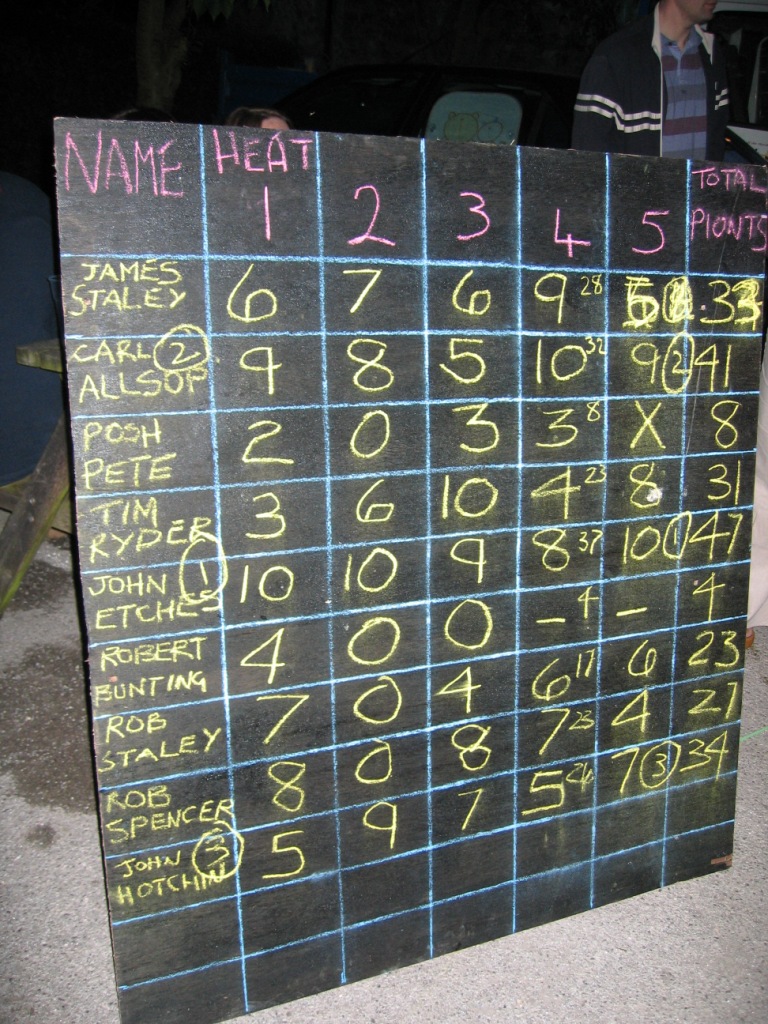 NAME HEAT TOTAL
1 2 3 4 5 PIONTS
JAMES
STALEY 6 7 6 9 28 33
CARL 2
ALLSOP 9 8 5 10 32 9 2 41
POSH
PETE 2 0 3 3 8 X 8
TIM
RYDER 3 6 10 4 23 8 31
JOHN 1
ETCHES 10 10 9 8 37 10 1 47
ROBERT
BUNTING 4 0 0 – 4 – 4
ROB
STALEY 7 0 4 6 17 6 23
ROB
SPENCER 8 0 8 7 23 4 27
JOHN 3
HOTCHIN 5 9 7 5 26 7 3 34